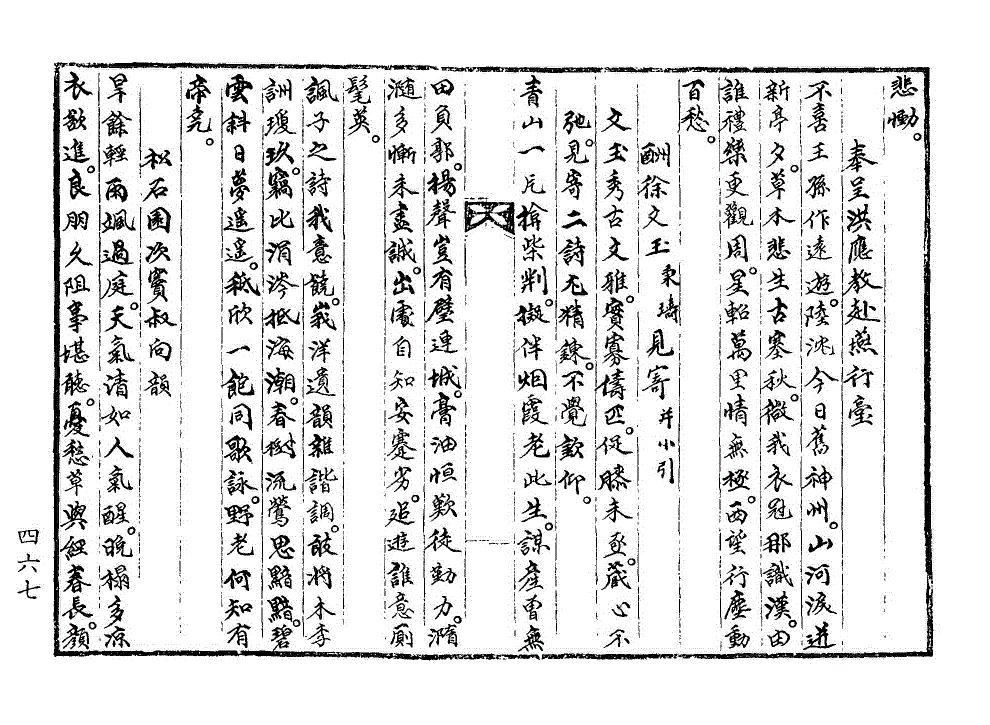 悲慟。
奉呈洪應教赴燕行臺
不喜王孫作遠遊。陸沈今日舊神州。山河淚迸
新亭夕。草木悲生古塞秋。微我衣冠那識漢。由
誰禮樂更觀周。星軺萬里情無極。西望行塵動
百愁。
酬徐文玉秉埼見寄幷小引
文玉秀古文雅。實寡儔匹。促膝未亟。藏心不
弛。見寄二詩尤精鍊。不覺歎仰。
青山一几揜柴荆。擬伴烟霞老此生。謀産曾無
田負郭。揚聲豈有璧連城。膏油恒歎徒勤力。瀡
瀡多慚未盡誠。出處自知安蹇劣。追遊誰意廁
髦英。
諷子之詩我意饒。峩洋遺韻雜諧調。敢將木李
訓瓊玖。竊比涓涔抵海潮。春樹流鶯思黯黯。碧
雲斜日夢遥遥。秪欣一飽同歌詠。野老何知有
帝堯。
松石園次實叔向韻
旱餘輕雨颯過庭。天氣清如人氣醒。晩榻多凉
衣欲進。良朋久阻事堪聽。憂愁草與經春長。顔
四六七